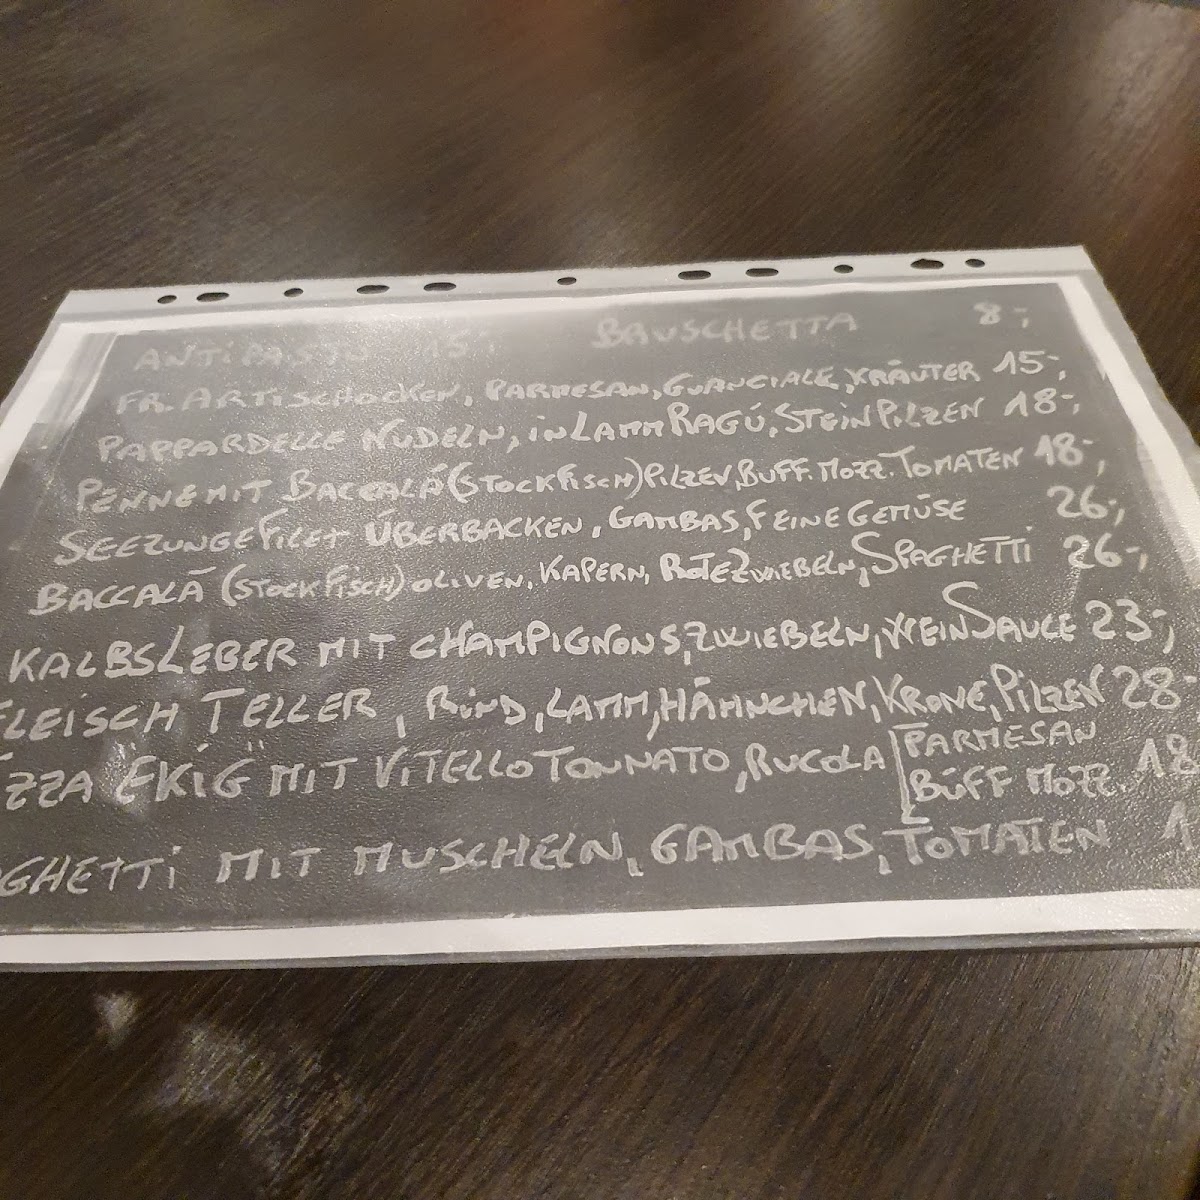 ANTIPASTO 15,- BAUSCHETTA 8-;
FR. ARTISCHOCKEN, PARMESAN, GUANCIALE, KRÄUTER 15-;
PAPPARDELLE NUDELN, IN LAMM RAGÚ, STEINPILZEN 18-;
PENNE MIT BACCALÁ (STOCKFISCH) PILZEN, BUFF. MOZZ. TOMATEN 18-;
SEEZUNGEFILET ÜBERBACKEN, GAMBAS, FEINE GEMÜSE 26-;
BACCALÁ (STOCKFISCH) OLIVEN, KAPERN, ROTE ZWIEBELN, SPAGHETTI 26-;
KALBSLEBER MIT CHAMPIGNONS, ZWIEBELN, WEIN SAUCE 23-;
FLEISCH TELLER, RIND, LAMM, HÄHNCHEN, KRONE, PILZEN 28-
ZZA "EKIG" MIT VITELLO TONNATO, RUCOLA PARMESAN
BÜFF MOZZ. 18
GHETTI MIT MUSCHELN, GAMBAS, TOMATEN 1